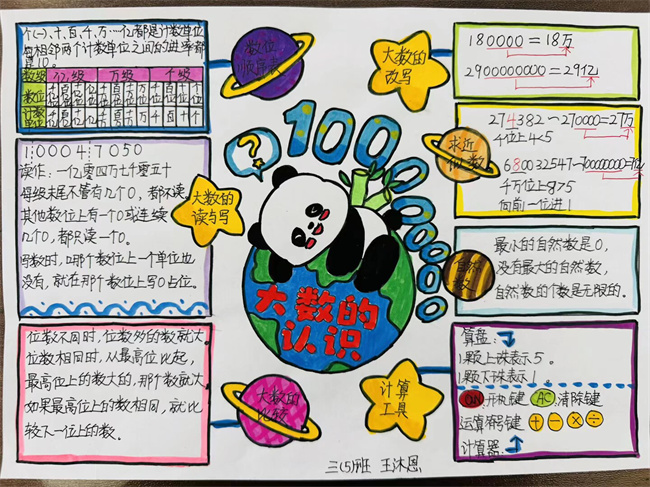 个(一)、十、百、千、万…亿都是计数单位
每相邻两个计数单位之间的进率都
是10。
数级 亿级 万级 个级
数位
计数单位
数位
顺序表
大数的
改写
180000=18万
2900000000=29亿
1 0004 7050
读作：一亿零四万七千零五十
每级末尾不管有几个0，都不读。
其他数位上有一个0或连续
几个0，都只读一个0。
写数时，哪个数位上一个单位也
没有，就在那个数位上写0占位。
大数的
读与写
?
1000000000
大数的
认识
求近
似数
274382≈270000=27万
千位上4<5
千万位上8>5
向前一位进1
自然
数
最小的自然数是0，
没有最大的自然数，
自然数的个数是无限的。
位数不同时，位数多的数就大。
位数相同时，从最高位比起，
最高位上的数大的，那个数就大
如果最高位上的数相同，就比
较下一位上的数。
大数的
比较
计算
工具
算盘：
1颗上珠表示5。
1颗下珠表示1。
ON开机键 AC清除键
运算符号键 + - × ÷
计算器：
三(5)班 王沐恩